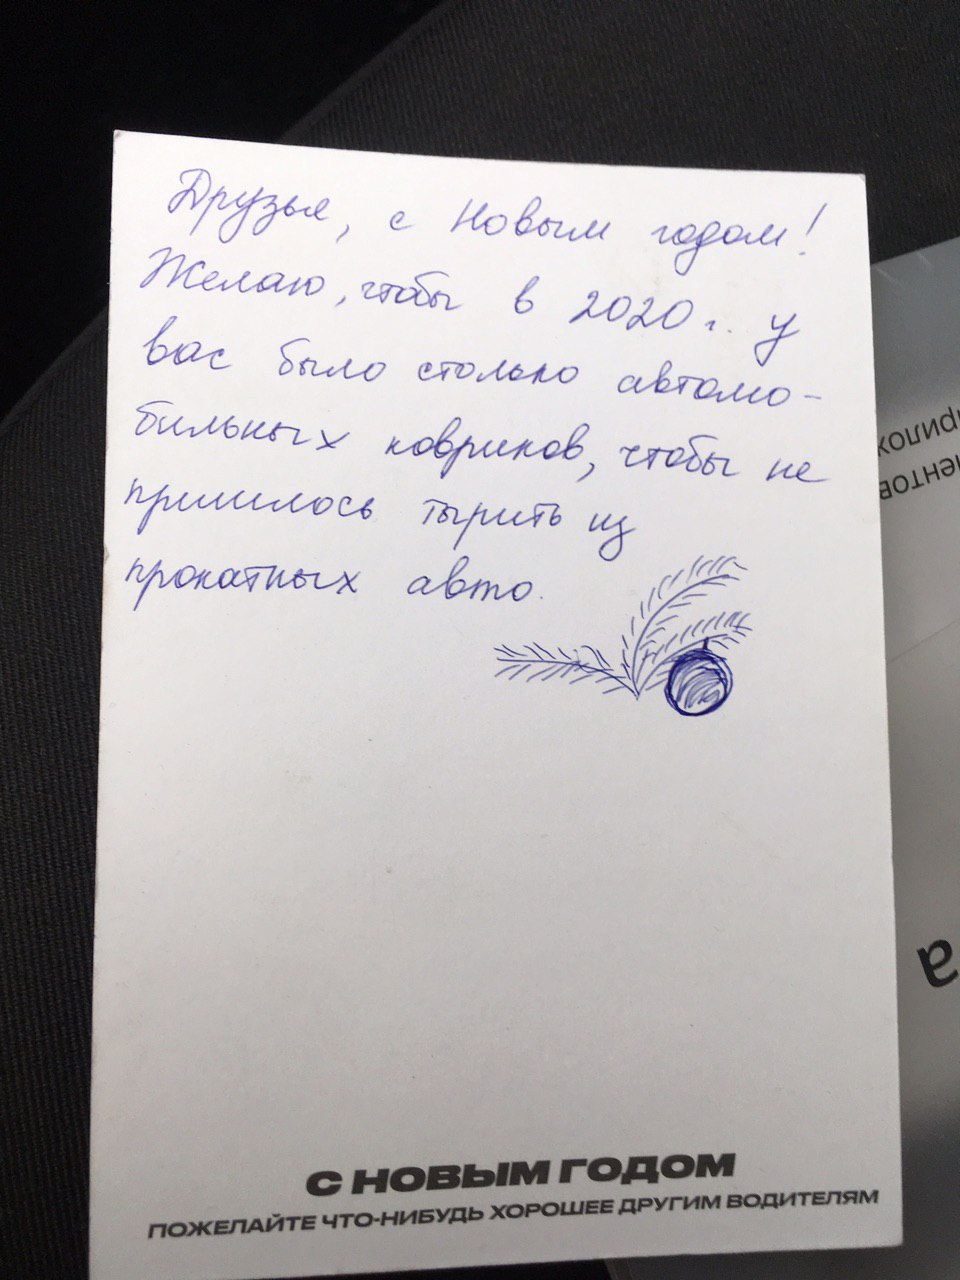 Друзья, с Новым годом!
Желаю, чтобы в 2020 г. у
вас было столько автомо-
бильных ковриков, чтобы не
пришлось тырить из
прокатных авто.
С НОВЫМ ГОДОМ
ПОЖЕЛАЙТЕ ЧТО-НИБУДЬ ХОРОШЕЕ ДРУГИМ ВОДИТЕЛЯМ
а